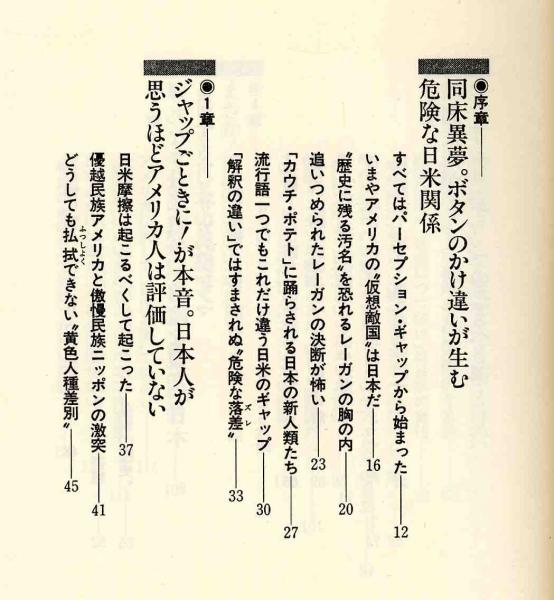 ◉序章
同床異夢。ボタンのかけ違いが生む
危険な日米関係
すべてはパーセプション・ギャップから始まった——12
いまやアメリカの〝仮想敵国〟は日本だ——16
〝歴史に残る汚名〟を恐れるレーガンの胸の内——20
追いつめられたレーガンの決断が怖い——23
「カウチ・ポテト」に踊らされる日本の新人類たち——27
流行語一つでもこれだけ違う日米のギャップ——30
「解釈の違い」ではすまされぬ〝危険な落差〟——33
ズレ
◉1章
ジャップごときに!が本音。日本人が
思うほどアメリカ人は評価していない
日米摩擦は起こるべくして起こった——37
優越民族アメリカと傲慢民族ニッポンの激突——41
どうしても払拭できない〝黄色人種差別〟——45
ふっしょく